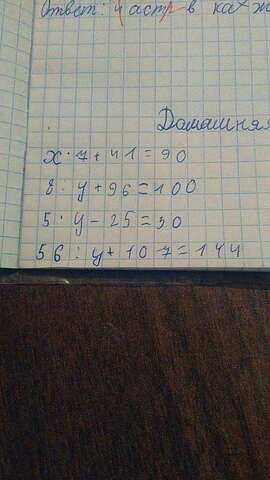 Ответ: 4 астр в каж
Домашняя
x · 7 + 41 = 90
8 · y + 96 = 100
5 · y - 25 = 20
56 : y + 107 = 144